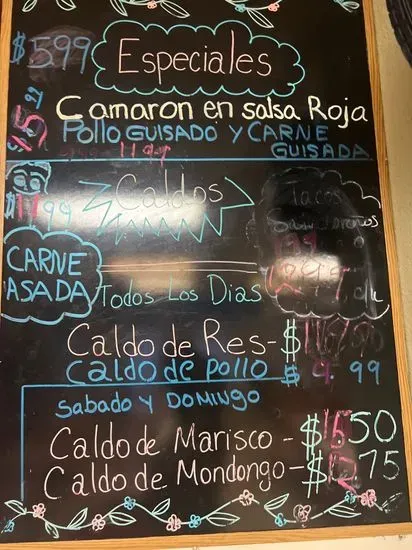 $5.99
Especiales
Camaron en salsa Roja
Pollo GUISADO Y CARNE
GUISADA
Caldos
Tacos
CARNE
ASADA
Todos Los Dias
Caldo de Res- $
Caldo de Pollo $ 9.99
Sabado Y DOMINGO
Caldo de Marisco - $16.50
Caldo de Mondongo - $ 75